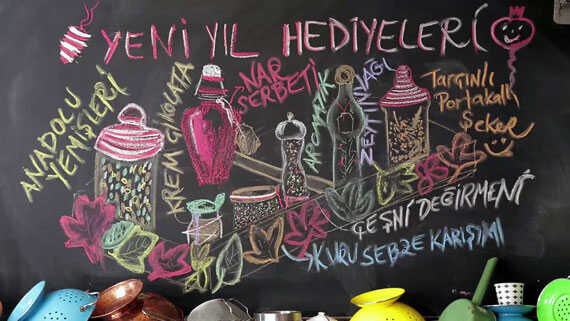 YENİ YIL HEDİYELERİ
ANADOLU
YEMİŞLERİ
KREM ÇİKOLATA
NAR
ŞERBETİ
AROMATİK
ZEYTİNYAĞI
Tarçınlı
Portakallı
Şeker
ÇEŞNİ DEĞİRMENİ
KURU SEBZE KARIŞIMI